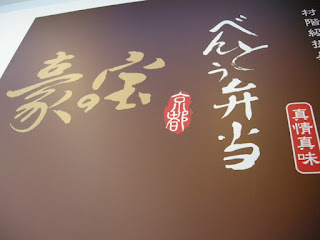 豪の宝
京都
べんとう弁当
村階級
真情真味